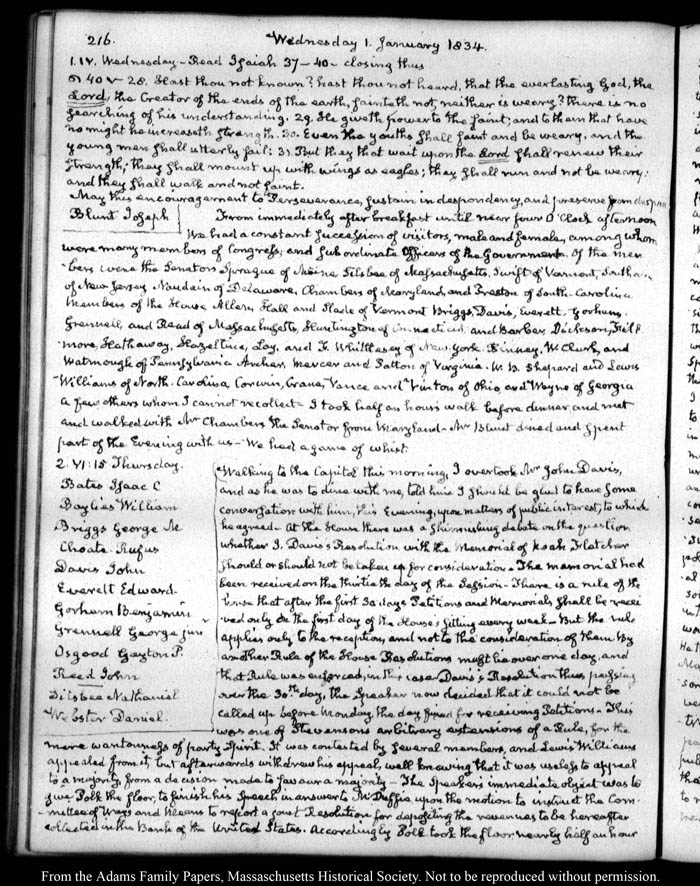 216.
Wednesday 1. January 1834.
1. IV. Wednesday – Read Isaiah 37–40 – closing thus
40 v 28. Hast thou not known? hast thou not heard, that the everlasting God, the
Lord, the Creator of the ends of the earth, fainteth not, neither is weary? there is no
searching of his understanding. 29. He giveth power to the faint; and to them that have
no might he increaseth strength. 30. Even the youths shall faint and be weary, and the
young men shall utterly fail: 31. But they that wait upon the Lord shall renew their
strength, they shall mount up with wings as eagles; they shall run and not be weary;
and they shall walk and not faint.
May this encouragement to Perseverance, sustain in despondency, and preserve from despair
Blunt Joseph
From immediately after breakfast until near four O'Clock afternoon
we had a constant succession of visitors, male and female, among whom
were many members of Congress, and subordinate Officers of the Government. Of the mem-
bers were the Senators Sprague of Maine Silsbee of Massachusetts, Swift of Vermont, Southard
of New Jersey Naudain of Delaware, Chambers of Maryland and Preston of South-Carolina
Members of the House Allen, Hall and Slade of Vermont Briggs, Davis, Everett, Gorham,
Grennell, and Read of Massachusetts, Huntington of Connecticut, and Barber, Dickson, Fill-
more, Hathaway, Hazeltine, Lay, and F. Whittlesey of New York. Binney, W. Clark, and
Watmough of Pennsylvania Archer, Mercer and Patton of Virginia. W. B. Shepard and Lewis
Williams of North. Carolina, Corwin, Crane, Vance and Vinton of Ohio, and Wayne of Georgia
a few others whom I cannot recollect – I took half an hour's walk before dinner and met
and walked with Mr Chambers the Senator from Maryland – Mr Blunt dined and spent
part of the Evening with us – We had a game of whist.
2. VI: 15 Thursday.
Bates Isaac C
Baylies William
Briggs George N
Choate Rufus
Davis John
Everett Edward.
Gorham Benjamin
Grennell George jun r
Osgood Gayton P.
Reed John
Silsbee Nathaniel
Webster Daniel.
Walking to the Capitol this morning, I overtook Mr John Davis,
and as he was to dine with me, told him I should be glad to have some
conversation with him, this Evening, upon matters of public interest, to which
he agreed – At the House there was a skirmishing debate on the question
whether J. Davis's Resolution with the Memorial of Noah Fletcher
should or should not be taken up for consideration – The memorial had
been received on the thirtieth day of the Session – There is a rule of the
house that after the first 30 days Petitions and Memorials shall be recei-
ved only on the first day of the House's sitting every week – But the rule
applies only to the reception, and not to the consideration of them. By
another Rule of the House Resolutions must lie over one day, and
that Rule was enforced, in this case Davis's Resolution thus passing
over the 30th day, the Speaker now decided that it could not be
called up before Monday, the day fixed for receiving Petitions – This
was one of Stevenson's arbitrary extensions of a Rule, for the
mere wantonness of party Spirit. It was contested by several members, and Lewis Williams
appealed from it, but afterwards withdrew his appeal, well knowing that it was useless to appeal
to a majority, from a decision made to favour a majority – The Speaker's immediate object was to
give Polk the floor, to finish his speech in answer to McDuffie upon the motion to instruct the Com-
mittee of Ways and Means to report a joint Resolution for depositing the revenues to be hereafter
collected in the Bank of the United States. Accordingly Polk took the floor nearly half an hour
From the Adams Family Papers, Massachusetts Historical Society. Not to be reproduced without permission.